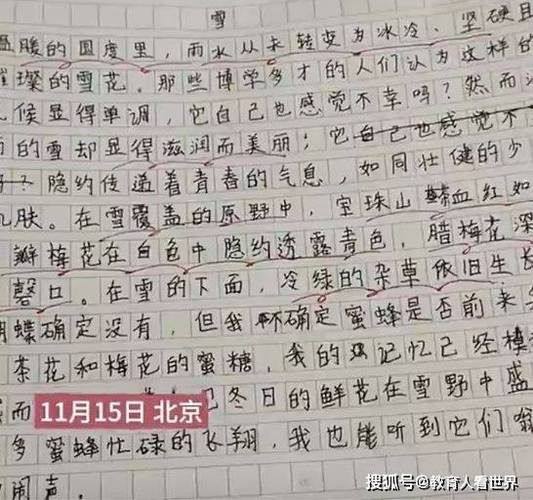 雪
温暖的国度里，而水从未转变为冰冷、坚硬且
璀璨的雪花。那些博学多才的人们认为这样的
气候显得单调，它自己也感觉不幸吗？然而
的雪却显得滋润而美丽；它自己也感觉不
？隐约传递着青春的气息，如同壮健的少
肌肤。在雪覆盖的原野中，宝珠山血红如
瓣梅花在白色中隐约透露青色，腊梅花深
磬口。在雪的下面，冷绿的杂草依旧生长
蝴蝶确定没有，但我不确定蜜蜂是否前来
茶花和梅花的蜜糖，我的记忆已经模
而 冬日的鲜花在雪野中盛
多蜜蜂忙碌的飞翔，我也能听到它们嗡
闹声。
11月15日 北京
搜狐号@教育人看世界